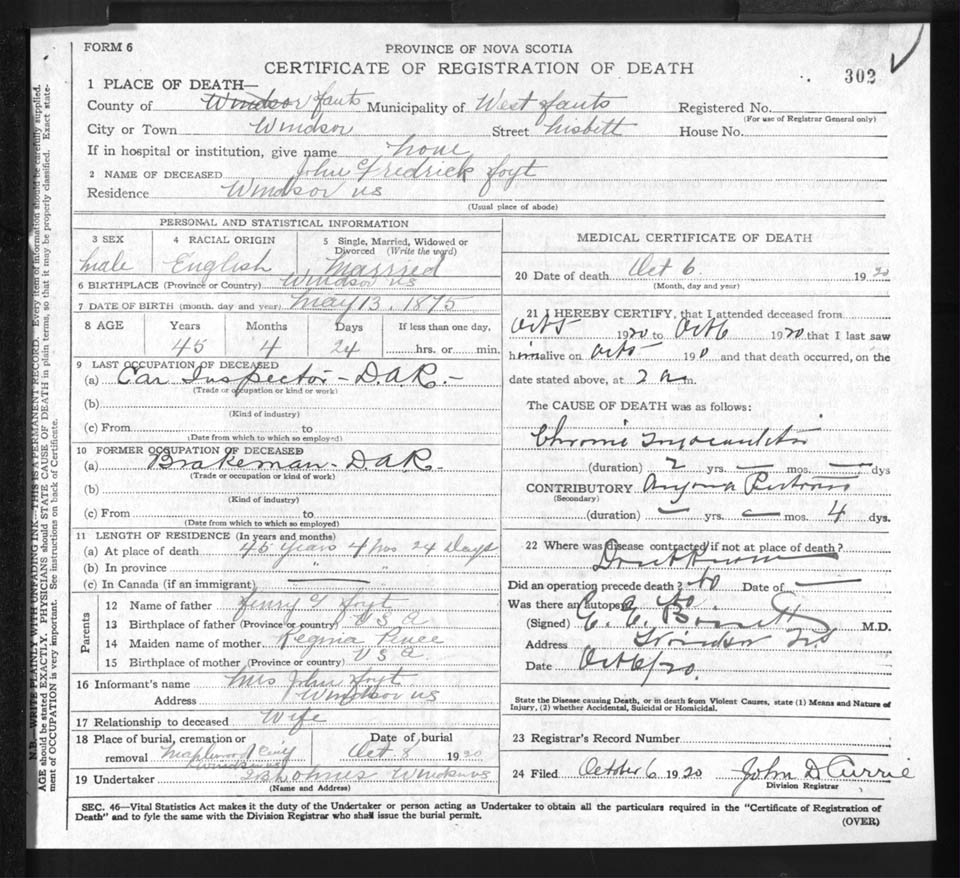 FORM 6
PROVINCE OF NOVA SCOTIA
CERTIFICATE OF REGISTRATION OF DEATH
302
1 PLACE OF DEATH—
County of Windsor Hants Municipality of West Hants Registered No.
(For use of Registrar General only)
City or Town Windsor Street Nisbett House No.
If in hospital or institution, give name None
2 NAME OF DECEASED John Fredrick
Residence Windsor NS
(Usual place of abode)
PERSONAL AND STATISTICAL INFORMATION
3 SEX
4 RACIAL ORIGIN
5 Single, Married, Widowed or Divorced (Write the word)
Male
English
Married
6 BIRTHPLACE (Province or Country) Windsor NS
7 DATE OF BIRTH (month, day and year) May 13. 1875
8 AGE Years Months Days If less than one day,
45 4 24 hrs. or min.
9 LAST OCCUPATION OF DECEASED
(a) Car Inspector - D.A.R. -
(Trade or occupation or kind or work)
(b)
(Kind of industry)
(c) From to
(Date from which to which so employed)
10 FORMER OCCUPATION OF DECEASED
(a) Brakeman - D.A.R. -
(Trade or occupation or kind of work)
(b)
(Kind of industry)
(c) From to
(Date from which to which so employed)
11 LENGTH OF RESIDENCE (In years and months)
(a) At place of death 45 Years 4 mos 24 Days
(b) In province " "
(c) In Canada (if an immigrant)
Parents
12 Name of father Henry
13 Birthplace of father (Province or country) U S A
14 Maiden name of mother Regina
15 Birthplace of mother (Province or country) U S A.
16 Informant's name Mrs John
Address Windsor NS
17 Relationship to deceased Wife
18 Place of burial, cremation or removal Maplewood Cemy Windsor NS
Date of burial Oct 8 1920
19 Undertaker Windsor NS
(Name and Address)
MEDICAL CERTIFICATE OF DEATH
20 Date of death Oct 6. 1920
(Month, day and year)
21 I HEREBY CERTIFY, that I attended deceased from
Oct 5 1920 to Oct 6 1920 that I last saw
him alive on Oct 5 190 and that death occurred, on the
date stated above, at 2 a m.
The CAUSE OF DEATH was as follows:
Chronic Myocarditis
(duration) 2 yrs. — mos. — dys
CONTRIBUTORY Angina Pectoris
(Secondary)
(duration) — yrs. — mos. 4 dys.
22 Where was disease contracted if not at place of death?
Don't Know
Did an operation precede death? No Date of —
Was there an autopsy No.
(Signed) E. E. M.D.
Address Windsor N.S.
Date Oct 6/20.
State the Disease causing Death, or in death from Violent Causes, state (1) Means and Nature of Injury, (2) whether Accidental, Suicidal or Homicidal.
23 Registrar's Record Number
24 Filed October 6 1920 John D Currie
Division Registrar
SEC. 46—Vital Statistics Act makes it the duty of the Undertaker or person acting as Undertaker to obtain all the particulars required in the "Certificate of Registration of
Death" and to fyle the same with the Division Registrar who shall issue the burial permit.
(OVER)
N.B.—WRITE PLAINLY WITH UNFADING INK—THIS IS A PERMANENT RECORD. Every item of information should be carefully supplied.
AGE should be stated EXACTLY. PHYSICIANS should STATE CAUSE OF DEATH in plain terms, so that it may be properly classified. Exact state-
ment of OCCUPATION is very important. See instructions on back of Certificate.